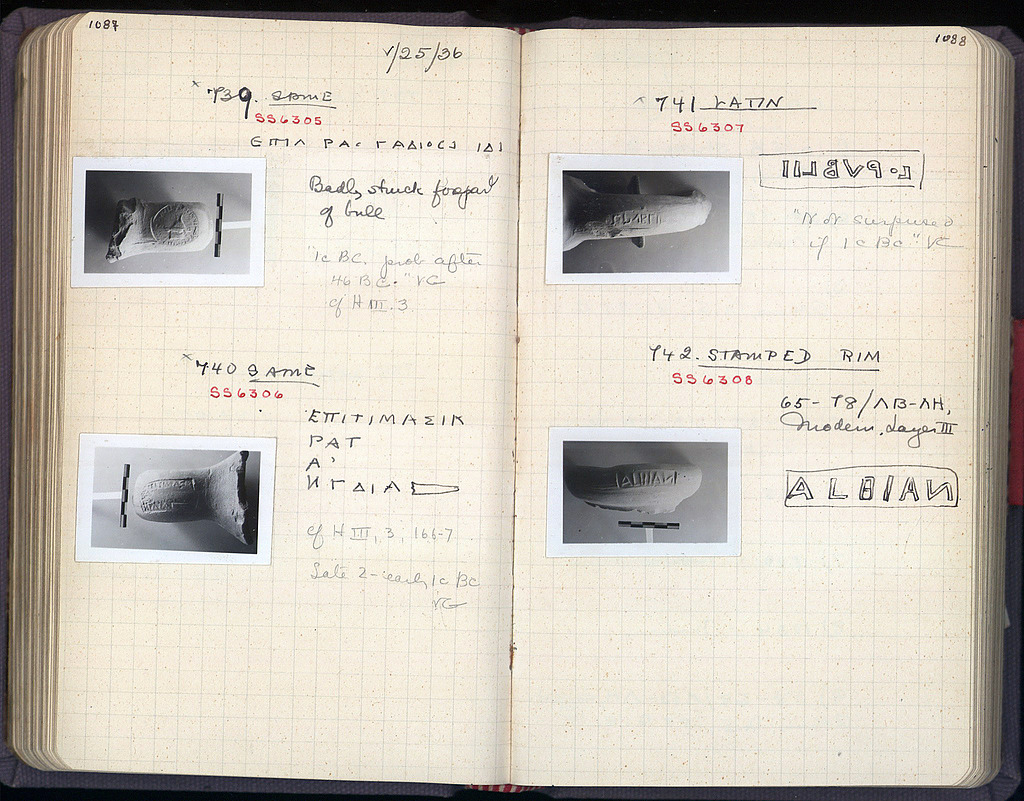 1087
V/25/36
× 739. SAME
SS6305
ΕΠΙΛ ΡΑС ΓΑΔΙΟС ΙΔΙ
Badly struck
of bull
"1c BC. prob after
46 BC." VG
cf H III. 3
× 740 SAME
SS6306
ΕΠΙΤΙΜΑΣΙΚ
ΡΑΤ
Α'
ΗΓΔΙΑ
cf H III, 3, 166-7
Late 2-early 1c BC
VG
1088
× 741 LATIN
SS6307
L·PVBLII
"Not surprised
if 1c BC." VG
742. STAMPED RIM
SS6308
65-78/ΛΒ-ΛΗ,
Modern. Layer III
ALBIAN